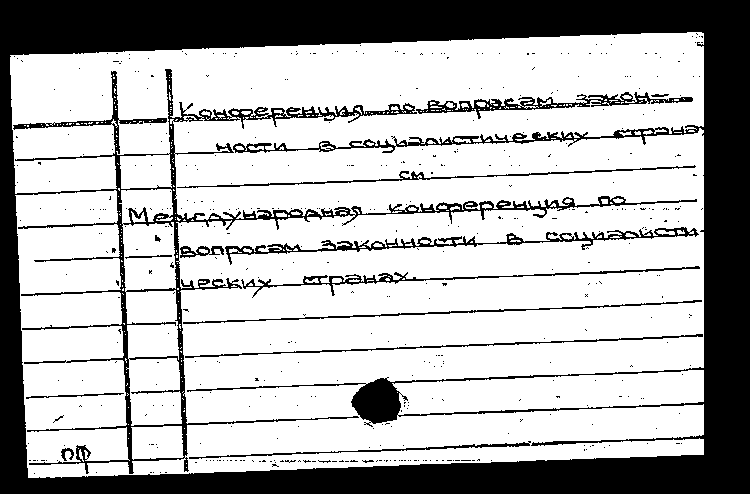 Конференция по вопросам закон-
ности в социалистических странах
см.
Международная конференция по
вопросам законности в социалисти-
ческих странах.
ПФ